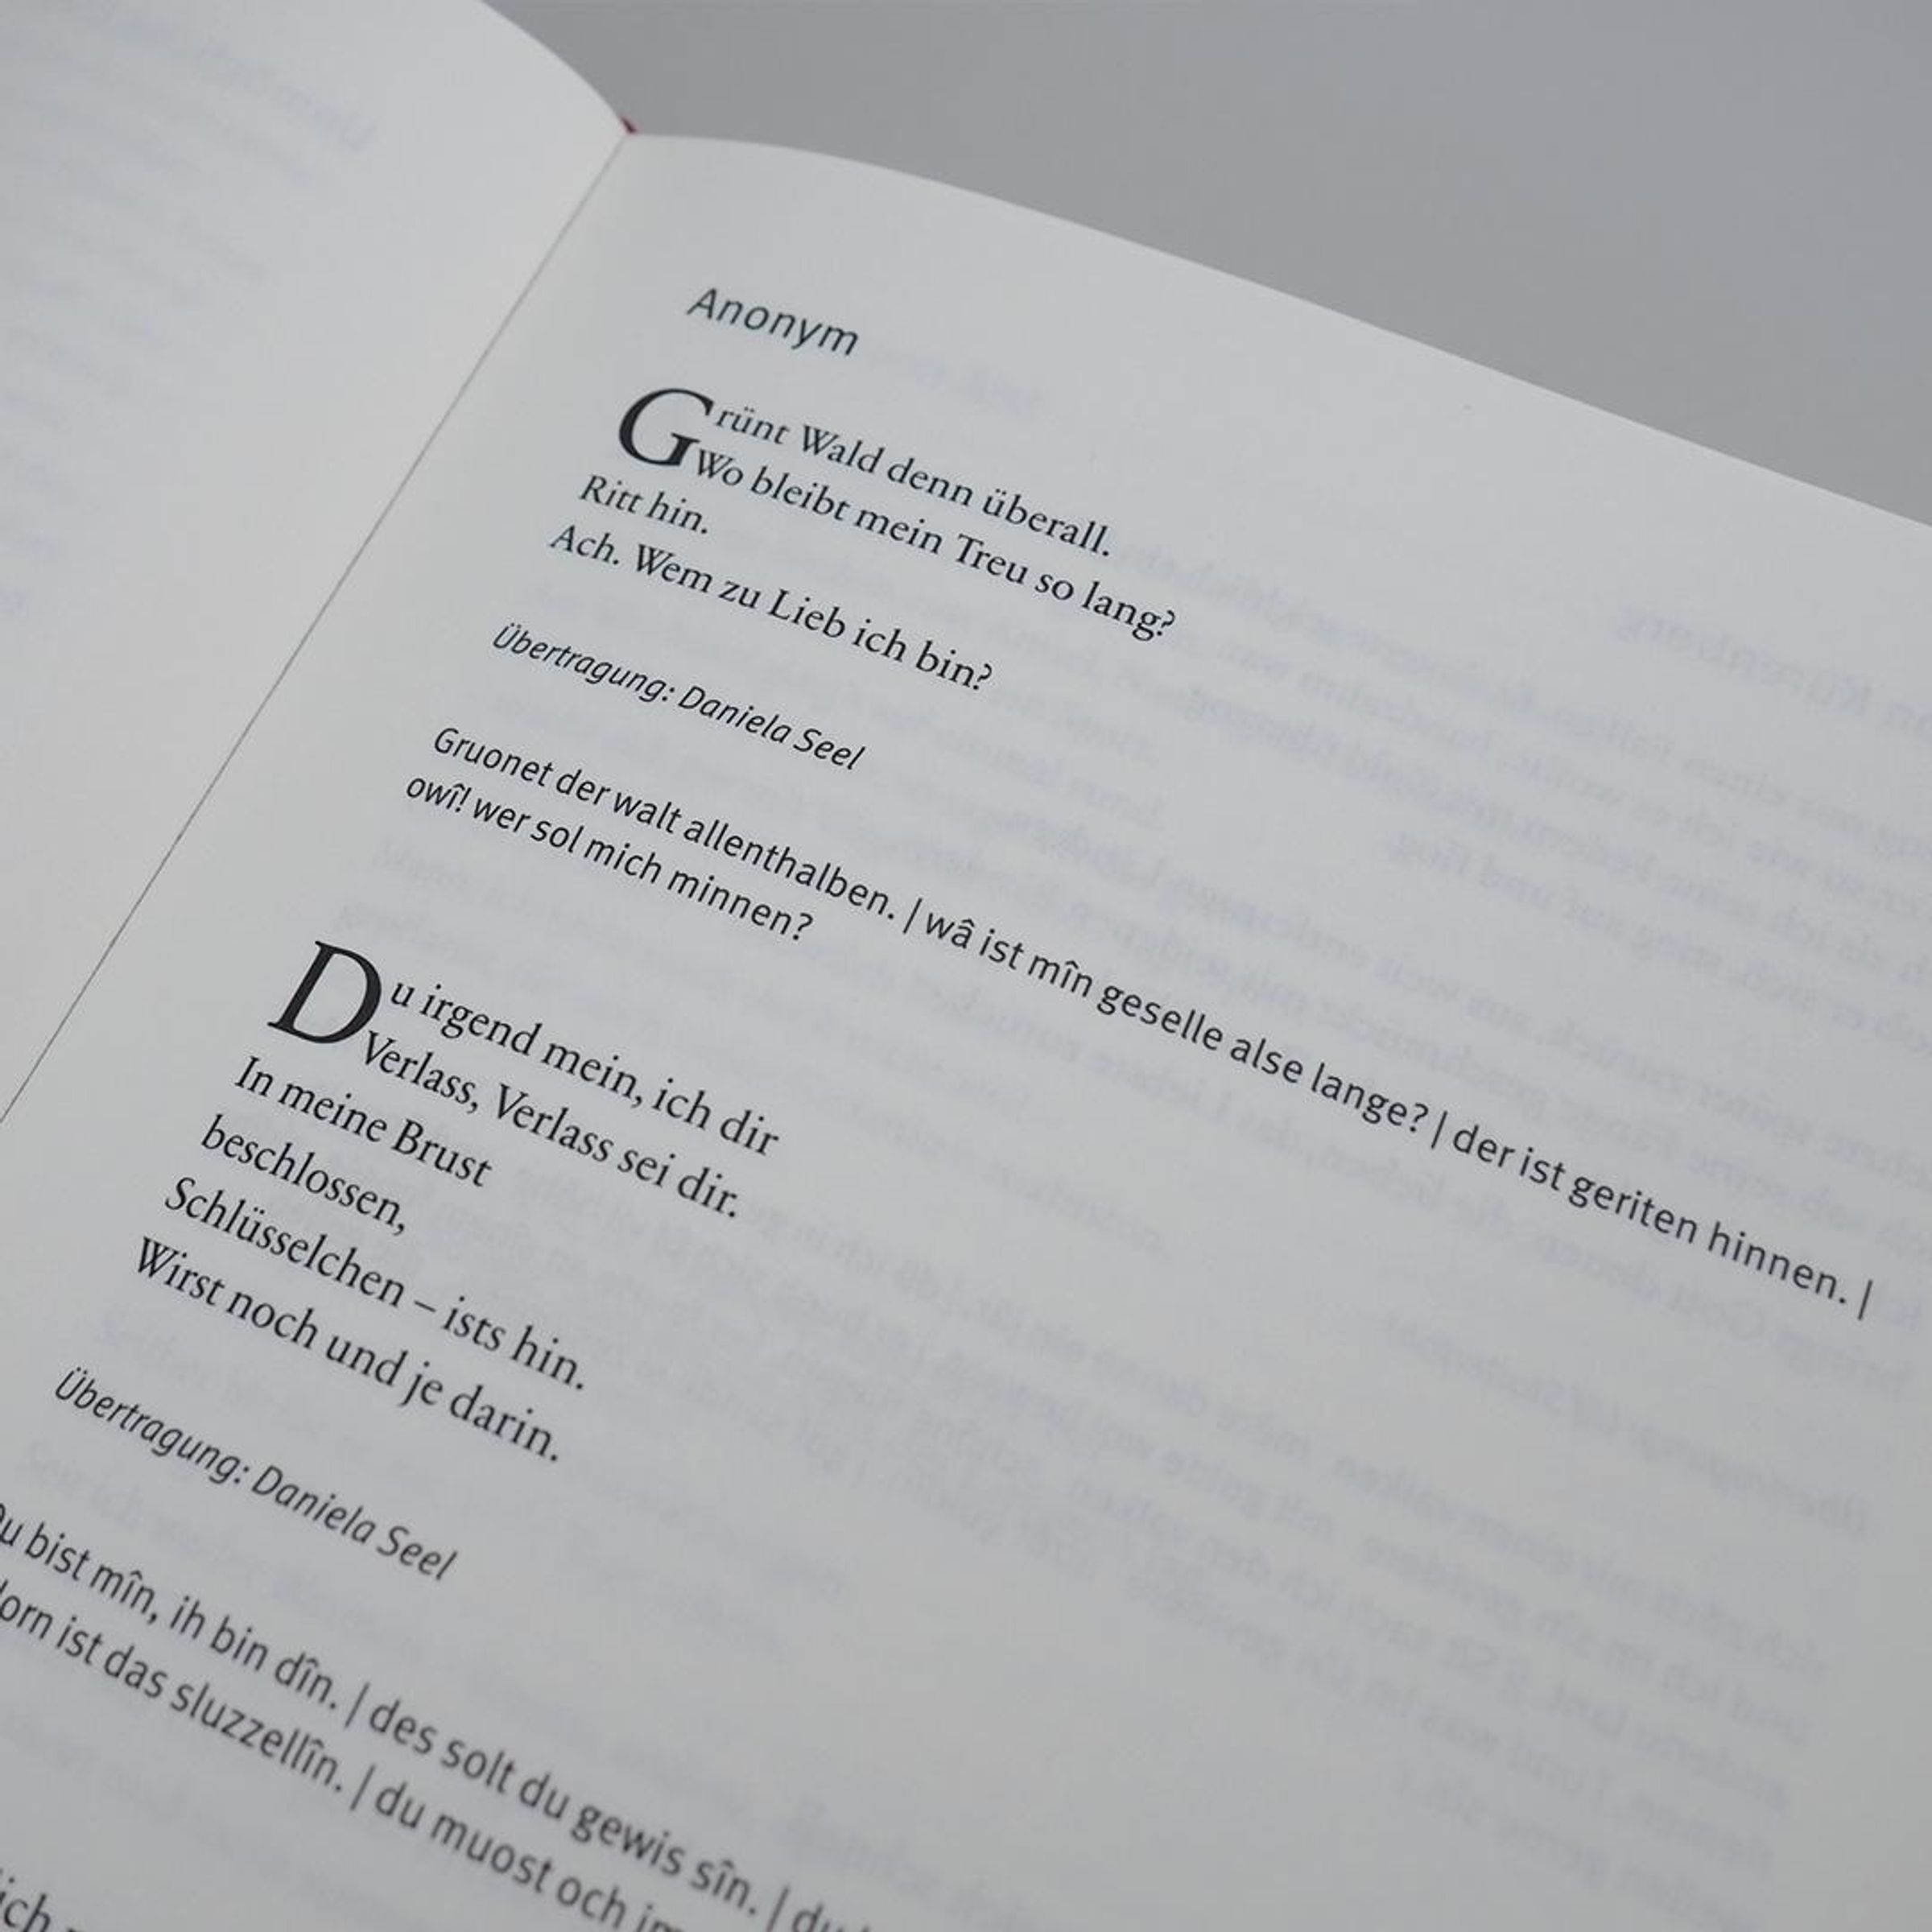 Anonym
Grünt Wald denn überall.
Wo bleibt mein Treu so lang?
Ritt hin.
Ach. Wem zu Lieb ich bin?
Übertragung: Daniela Seel
Gruonet der walt allenthalben. | wâ ist mîn geselle alse lange? | der ist geriten hinnen. |
owî! wer sol mich minnen?
Du irgend mein, ich dir
Verlass, Verlass sei dir.
In meine Brust
beschlossen,
Schlüsselchen – ists hin.
Wirst noch und je darin.
Übertragung: Daniela Seel
Du bist mîn, ih bin dîn. | des solt du gewis sîn. | du
ist das sluzzellîn. | du muost och